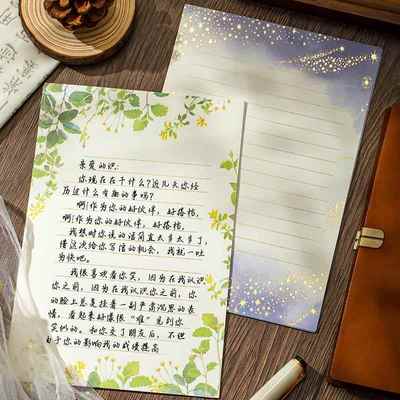 亲爱的识:
你现在在干什么?近几天你经
历过什么有趣的事吗?
啊!作为你的好伙伴,好搭档,
啊!作为你的好伙伴,好搭档,
我想对你说的话简直太多太多了,
借这次给你写信的机会,我就一吐
为快吧。
我很喜欢看你笑,因为在我认识
你之前,因为在我认识你之前,你
的脸上总是挂着一副严肃沉思的表
情,看起来好像很“难”见到你
笑似的。和你交了朋友后,不但
由于你的影响我的成绩提高